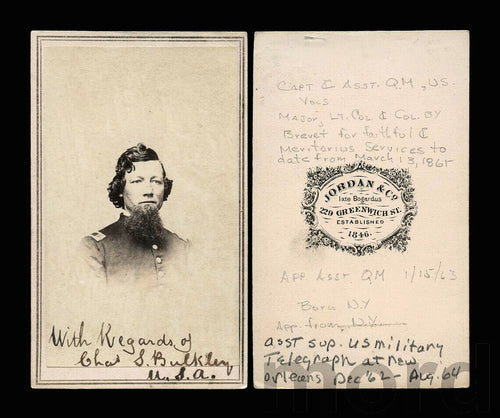 With Regards of
Chas S. Bulkley
U.S.A.
Capt & Asst. Q.M, U.S.
Vols
Major, Lt. Col & Col. By
Brevet for faithful &
Meritorius Services to
date from March 13, 1865
JORDAN & Co
late Bogardus
229 GREENWICH ST.
ESTABLISHED
1846.
App. Asst. QM 1/15/63
Born NY
App. from N.Y.
asst sup. US military
Telegraph at New
Orleans Dec '62 - Aug. 64